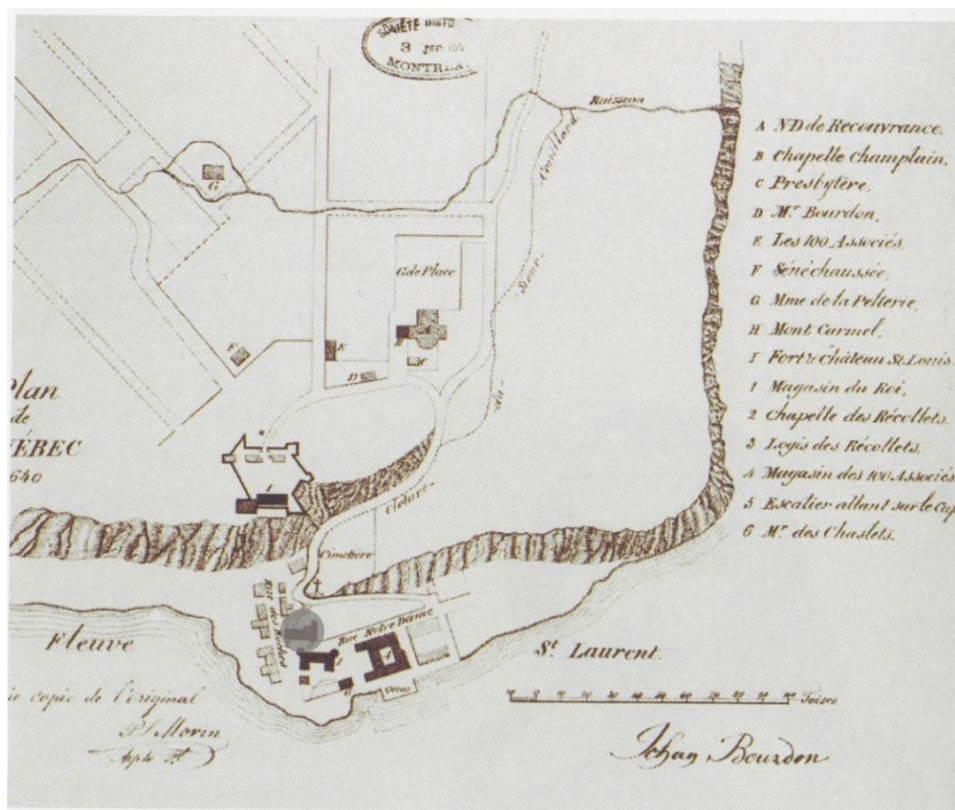 SOCIÉTÉ HISTO
3
MONTREAL
Ruisseau
Couillard
Sieur
du
Cloture
G
Gde Place
A
C
E
D
F
Plan
de
QUÉBEC
1640
Cimetière
Rue Notre Dame
Quai
6
Fleuve
St Laurent
copie de l'original
Toises
Jehan Bourdon
A ND de Recouvrance.
B Chapelle Champlain.
C Presbytère.
D Mr Bourdon,
E Les 100 Associés,
F Sénéchaussée,
G Mme de la Pelterie,
H Mont Carmel,
I Fort & Château St. Louis.
1 Magasin du Roi,
2 Chapelle des Récollets.
3 Logis des Récollets.
4 Magasin des 100 Associés
5 Escalier allant sur le Cap
6 Mr. des Chaslets.